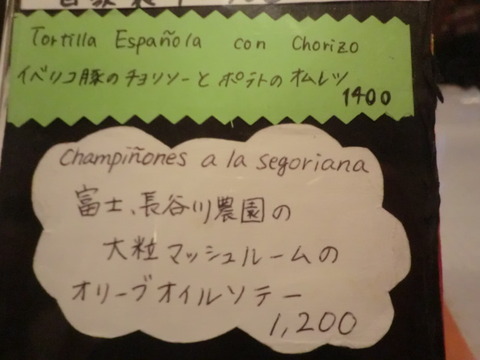 Tortilla Española con Chorizo
イベリコ豚のチョリソーとポテトのオムレツ
1400
Champiñones a la segoriana
富士、長谷川農園の
大粒マッシュルームの
オリーブオイルソテー
1,200